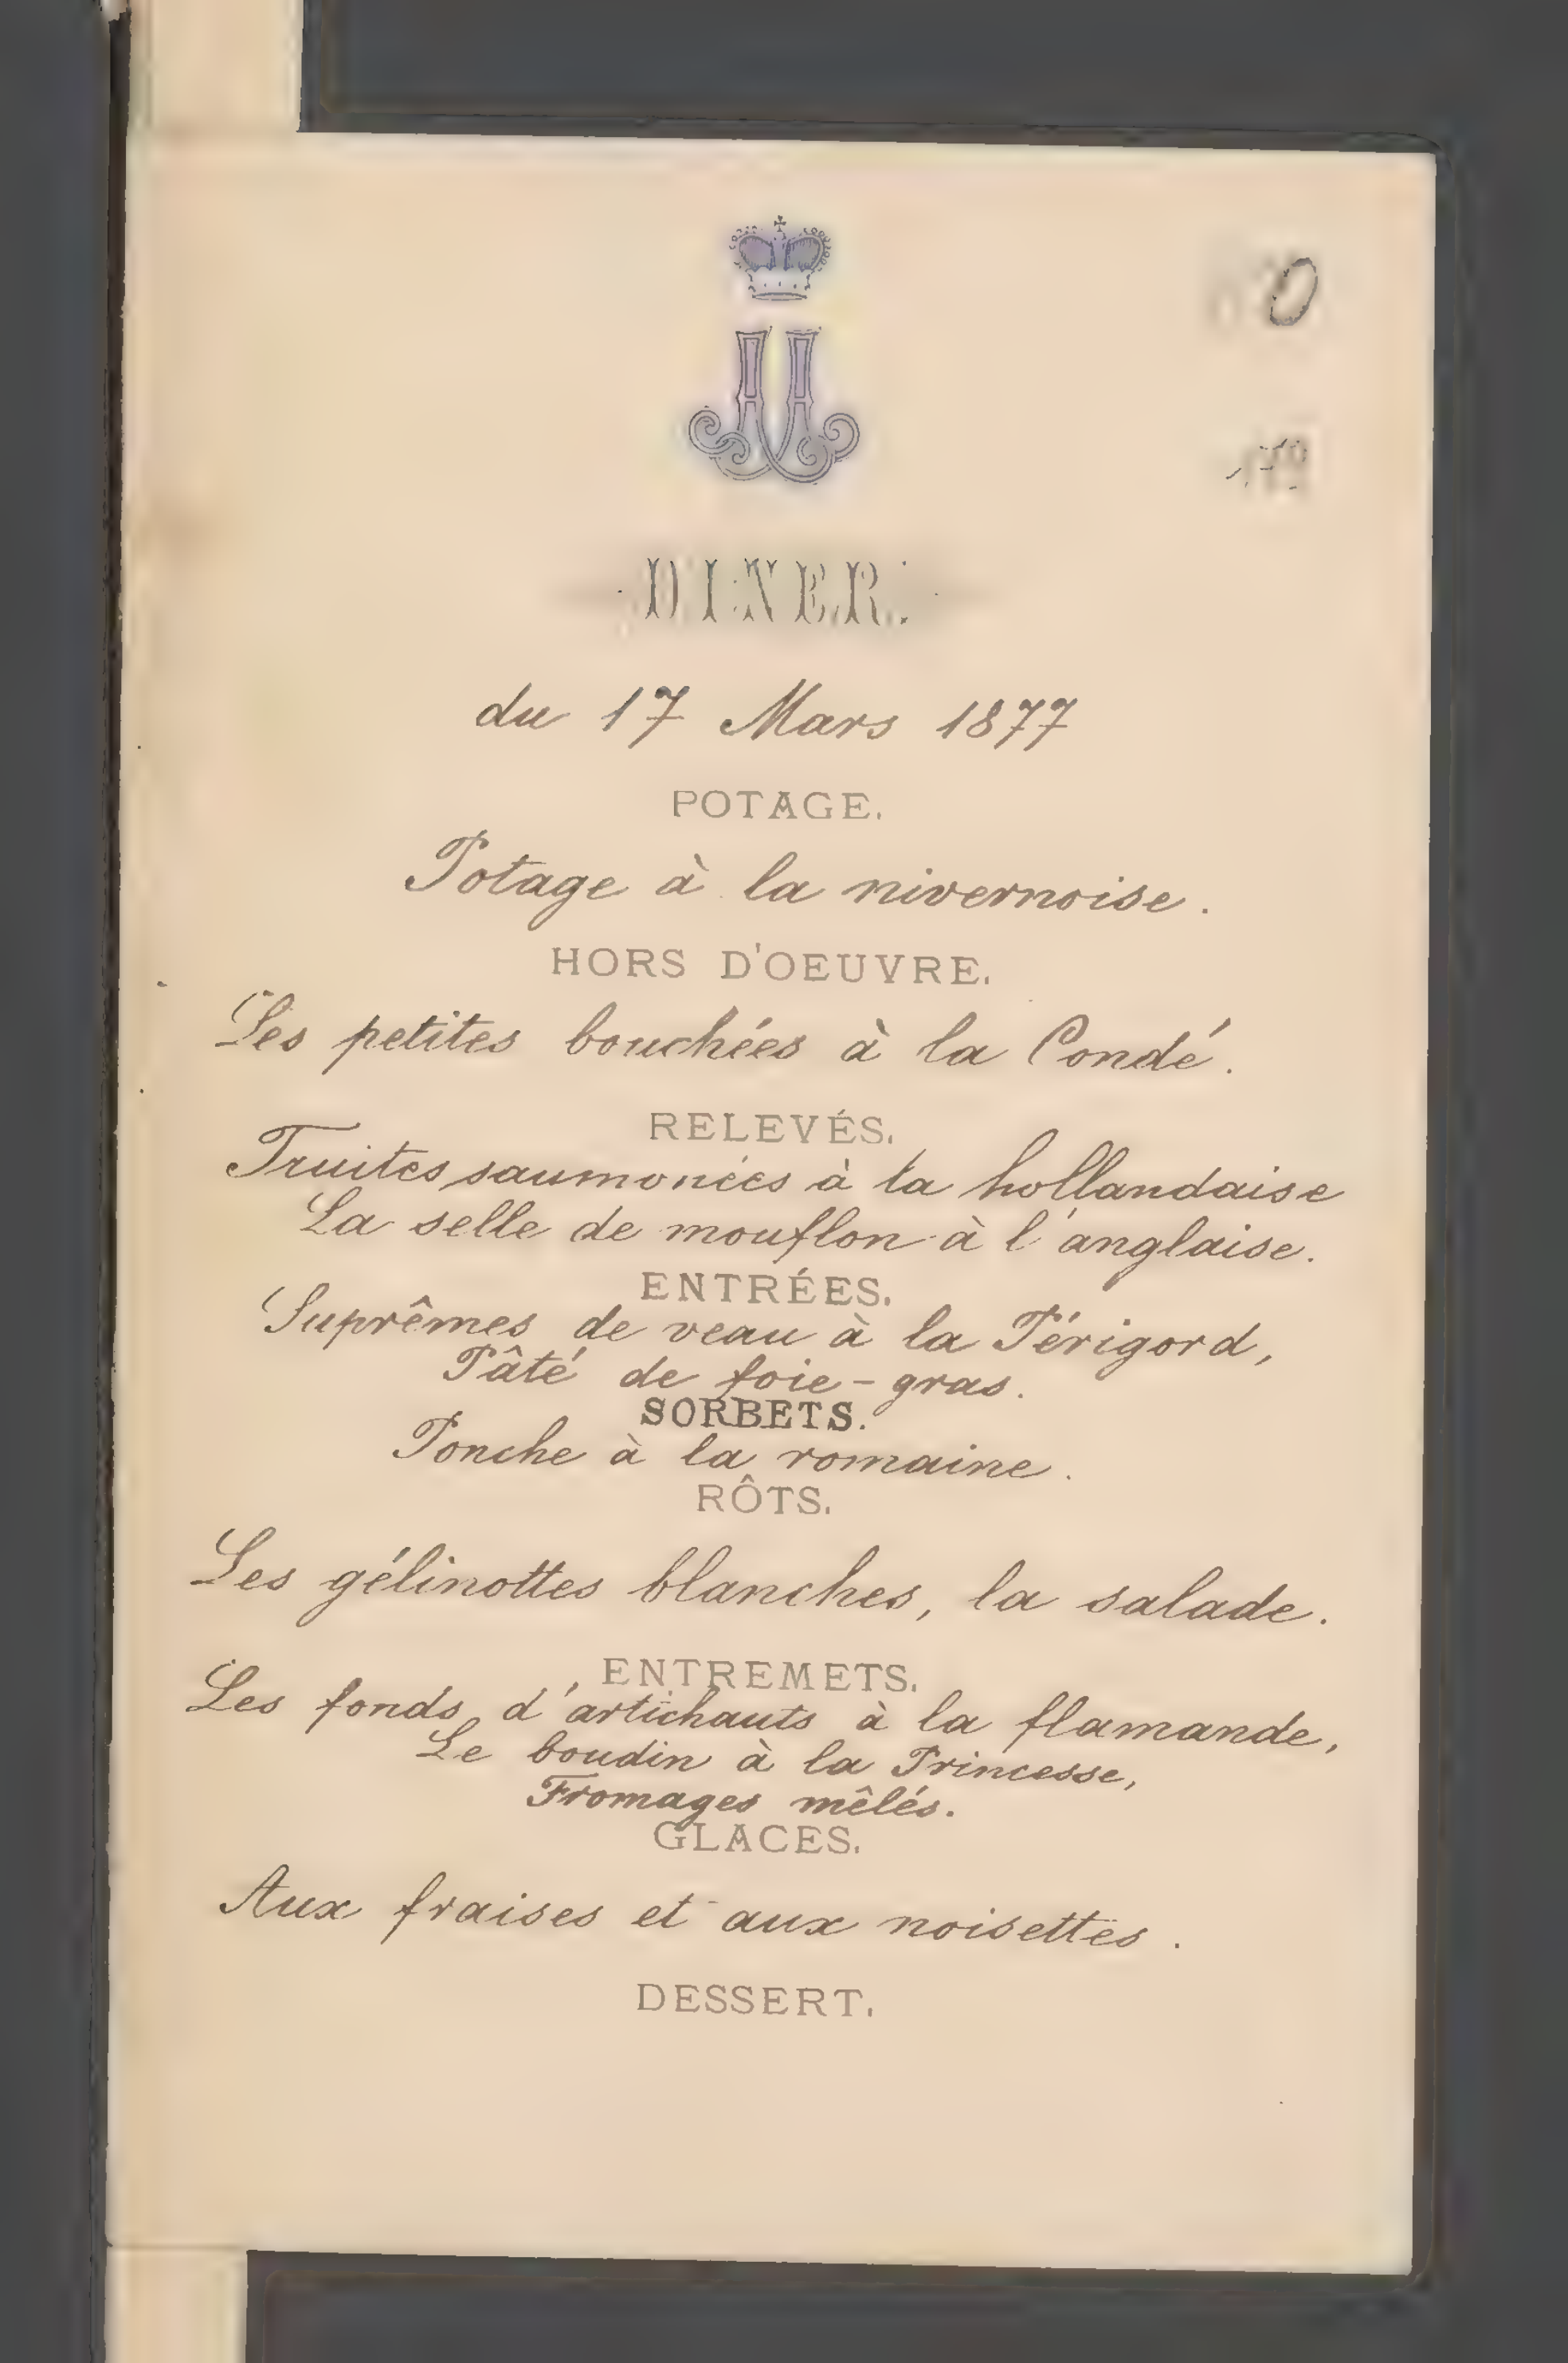 DINER.
du 17 Mars 1877
POTAGE.
Potage à la nivernoise.
HORS D'OEUVRE.
Les petites bouchées à la Condé.
RELEVÉS.
Truites saumonées à la hollandaise
La selle de mouflon à l'anglaise.
ENTRÉES.
Suprêmes de veau à la Périgord,
Pâté de foie-gras.
SORBETS.
Ponche à la romaine.
RÔTS.
Les gélinottes blanches, la salade.
ENTREMETS.
Les fonds d'artichauts à la flamande,
Le boudin à la Princesse,
Fromages mêlés.
GLACES.
Aux fraises et aux noisettes.
DESSERT.